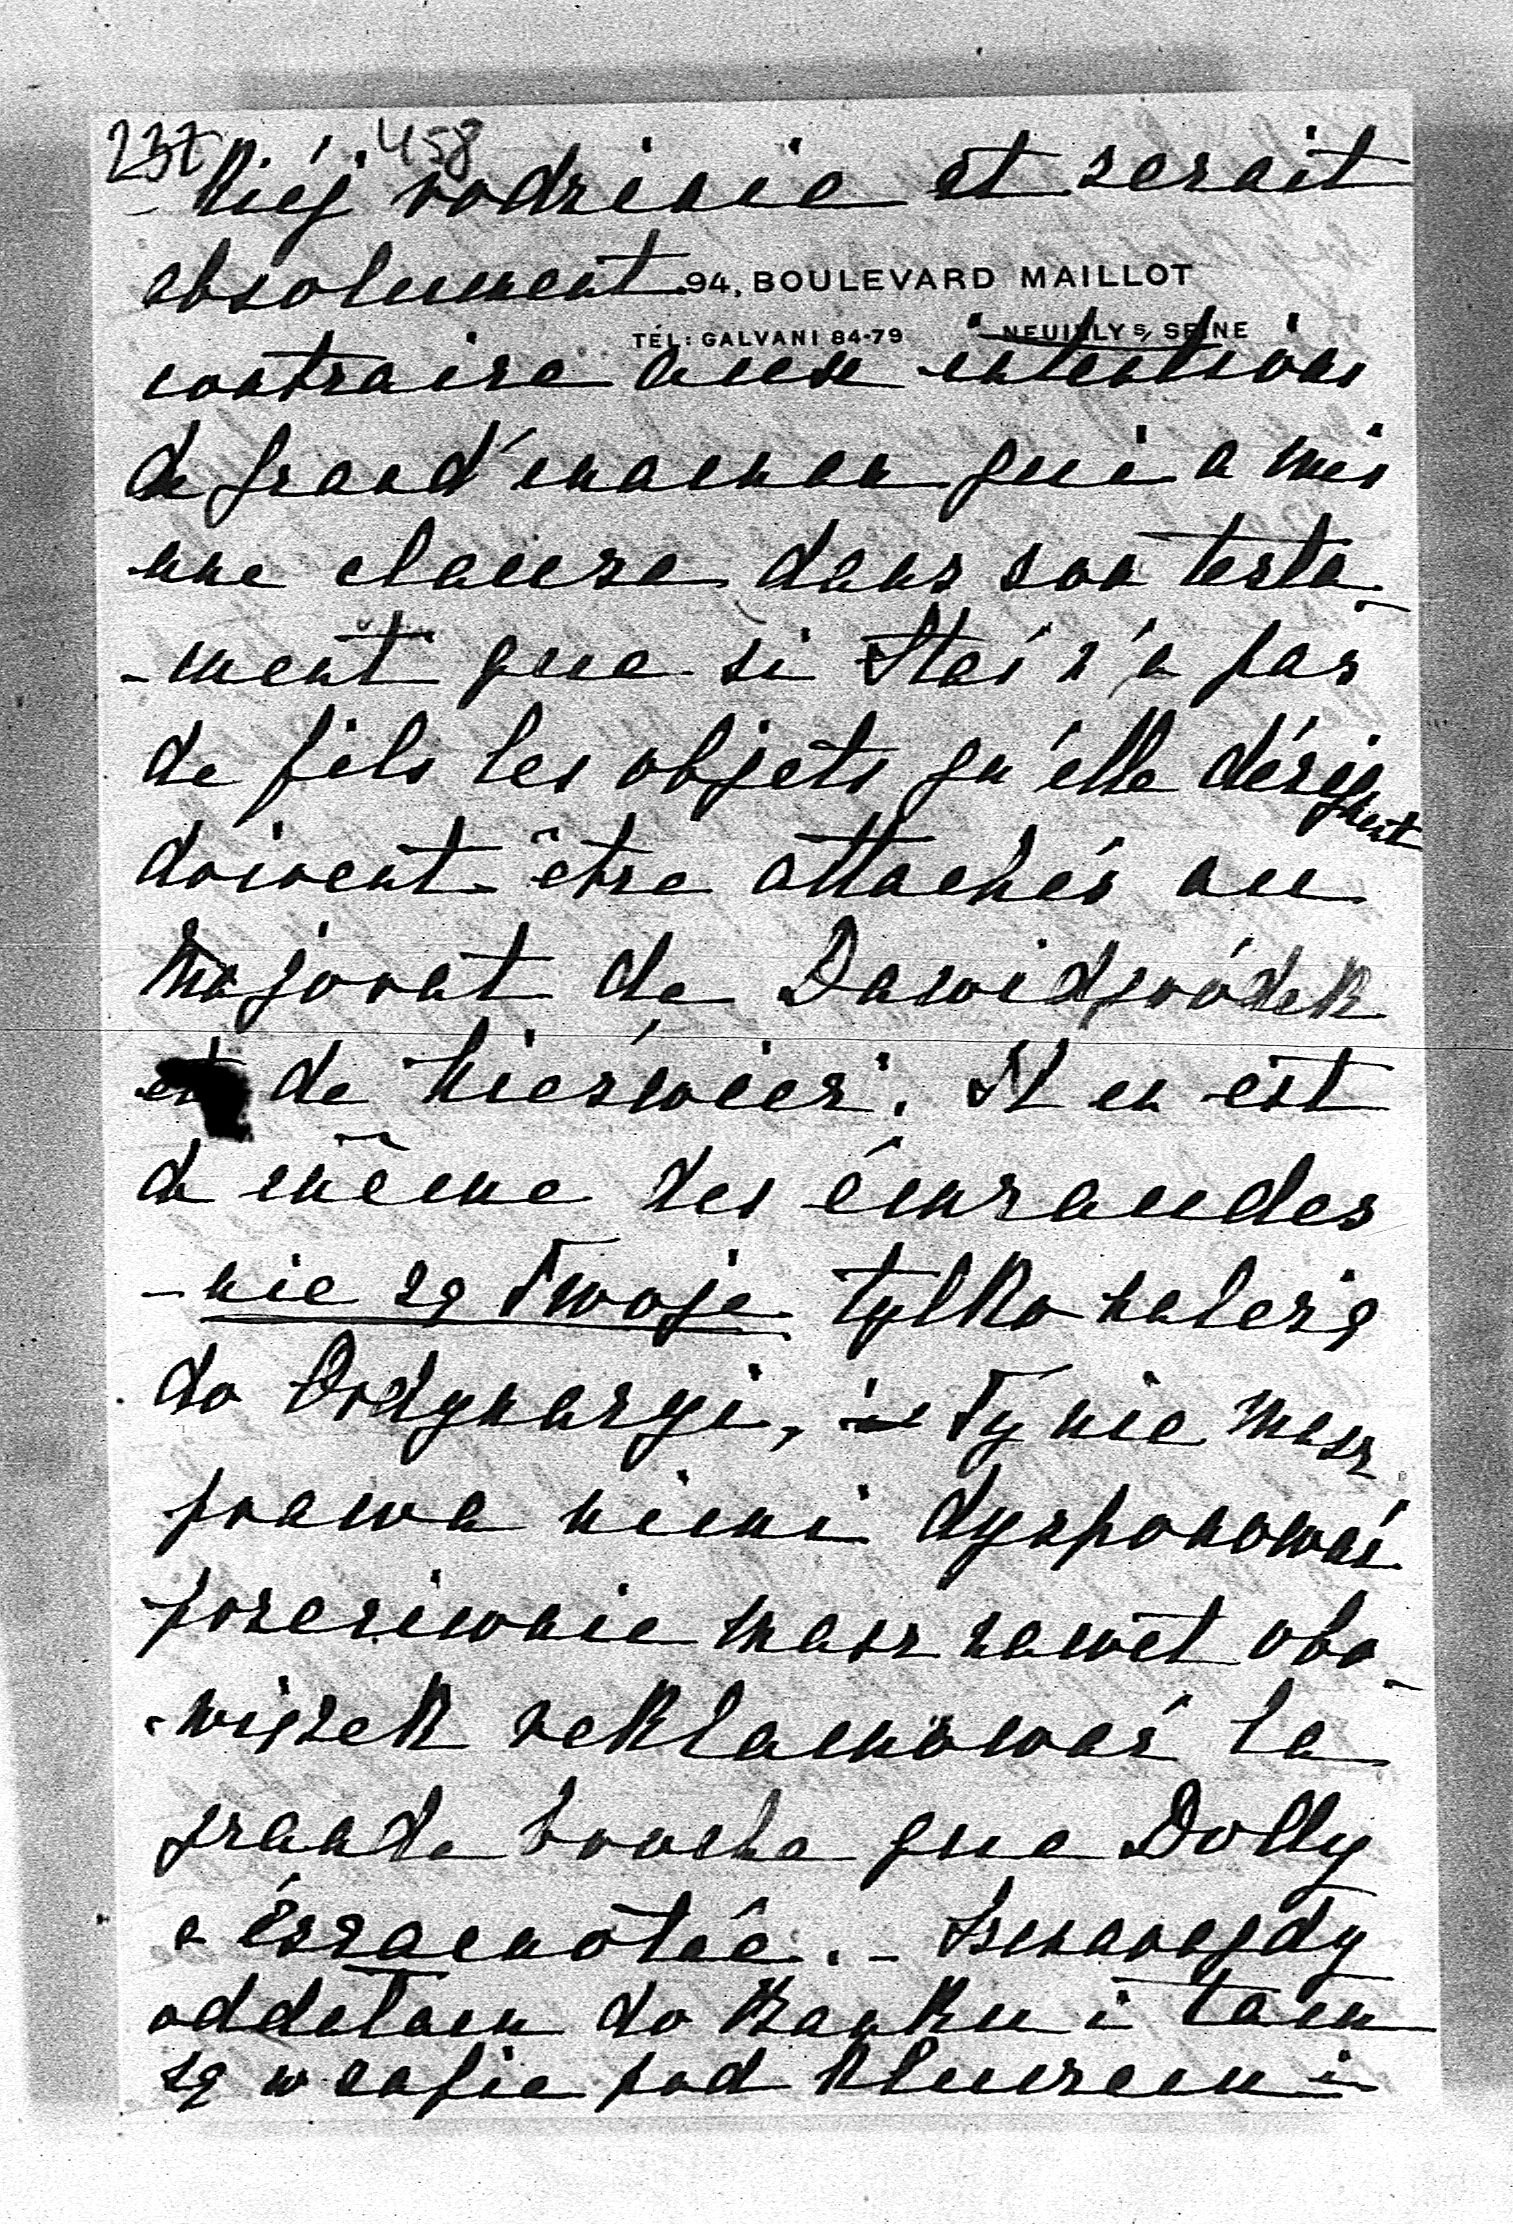 237 458
kiéj rodzinie et serait
absolument 94, BOULEVARD MAILLOT
TÉL: GALVANI 84-79 NEUILLY S/ SEINE
contraire aux intentions
de grand'maman qui a mis
une clause dans son testa-
-ment que si Staś n'a pas
de fils les objets qu'elle désignent
doivent être attachés au
Majorat de Dawidgródek
et de Nieświez. Il en est
de même des émraudes
- nie są Twoje tylko należą
do Ordynacyi, Ty nie masz
prawa niemi dysponować
przeciwnie masz nawet obo-
-wiązek reklamować la
grande broche que Dolly
a éscamotée. - Szmaragdy
oddałam do Banku i tam
są w safie pod kluczem i